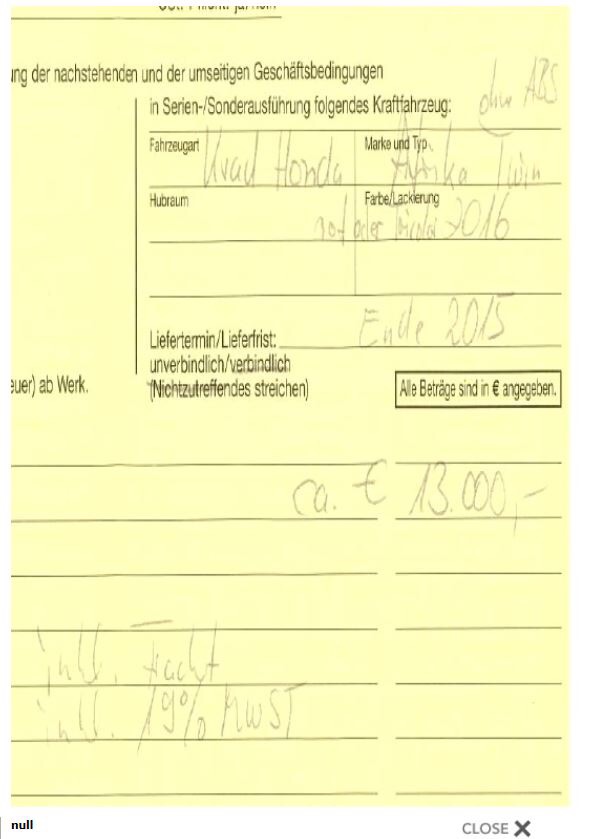 ng der nachstehenden und der umseitigen Geschäftsbedingungen
in Serien-/Sonderausführung folgendes Kraftfahrzeug: ohne ABS
Fahrzeugart Krad Honda Marke und Typ. Afrika Twin
Hubraum Farbe/Lackierung
rot oder Tricolor 2016
Liefertermin/Lieferfrist: Ende 2015
unverbindlich/verbindlich
euer) ab Werk. (Nichtzutreffendes streichen) Alle Beträge sind in € angegeben.
ca. € 13.000,-
inkl. Fracht
inkl. 19% MWST
null CLOSE